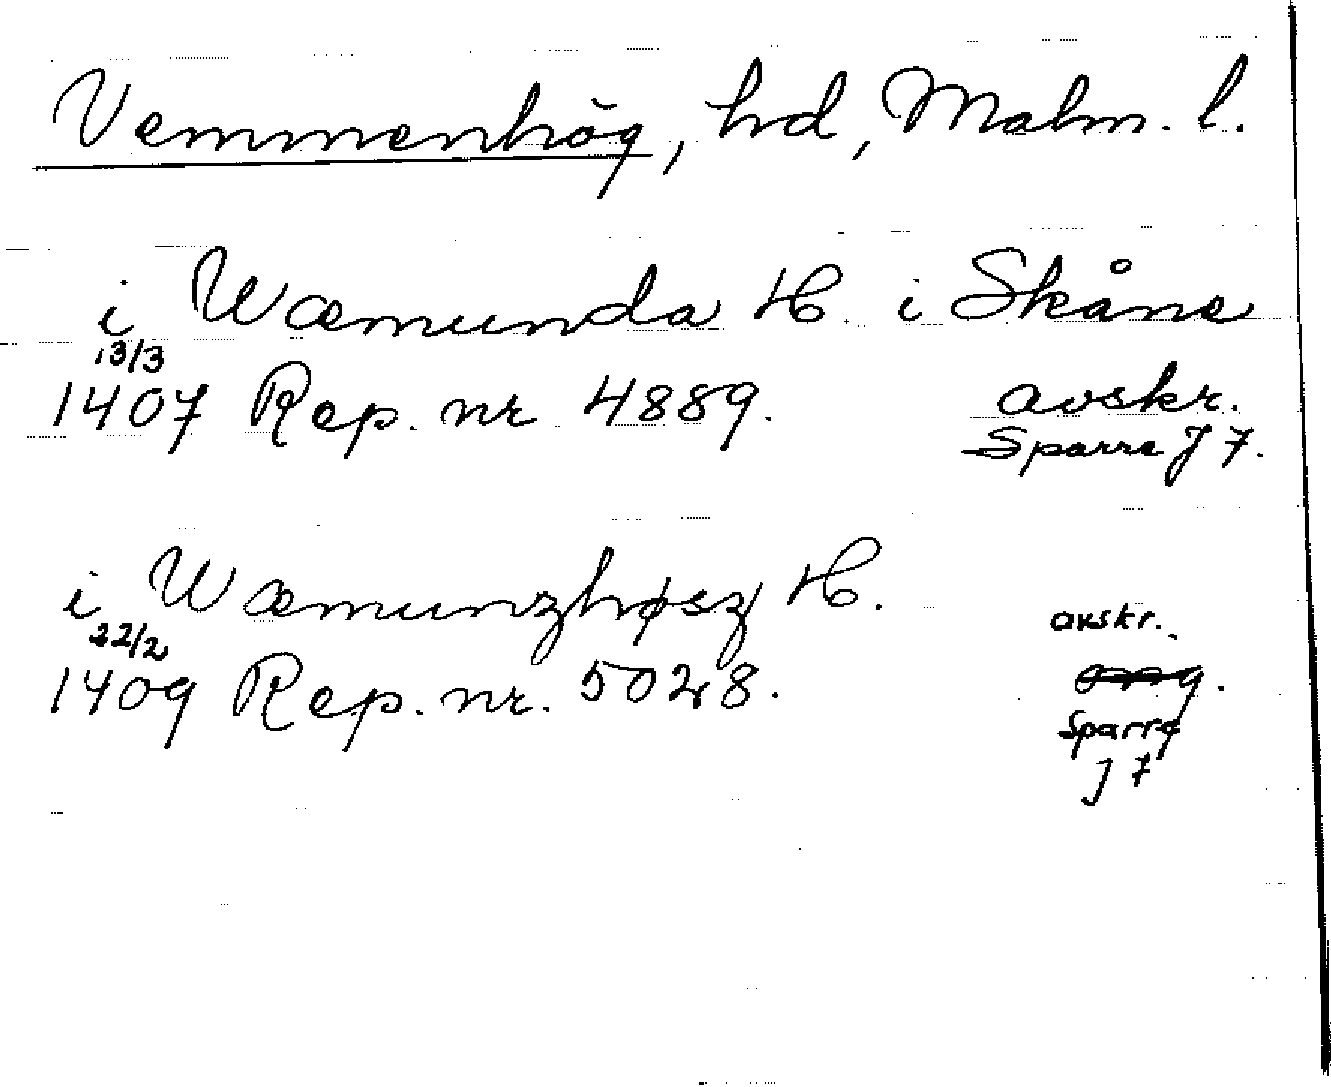 Vemmenhög, hd, Malm. l.
i Wæmunda H. i Skåne
13/3
1407 Rep. nr 4889. avskr.
Sparre J 7.
i Wæmunzhøsz H.
22/2 avskr.
1409 Rep. nr. 5028. org.
Sparre
J 7